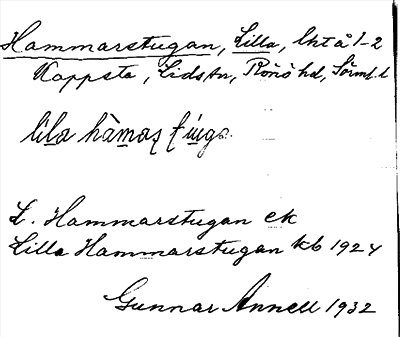 Hammarstugan, Lilla, lht å 1-2
Kappsta, Lids sn, Rönö hd, Sörml. l
lila hàmaʂtúga.
L. Hammarstugan ek
Lilla Hammarstugan kb 1924
Gunnar Annell 1932